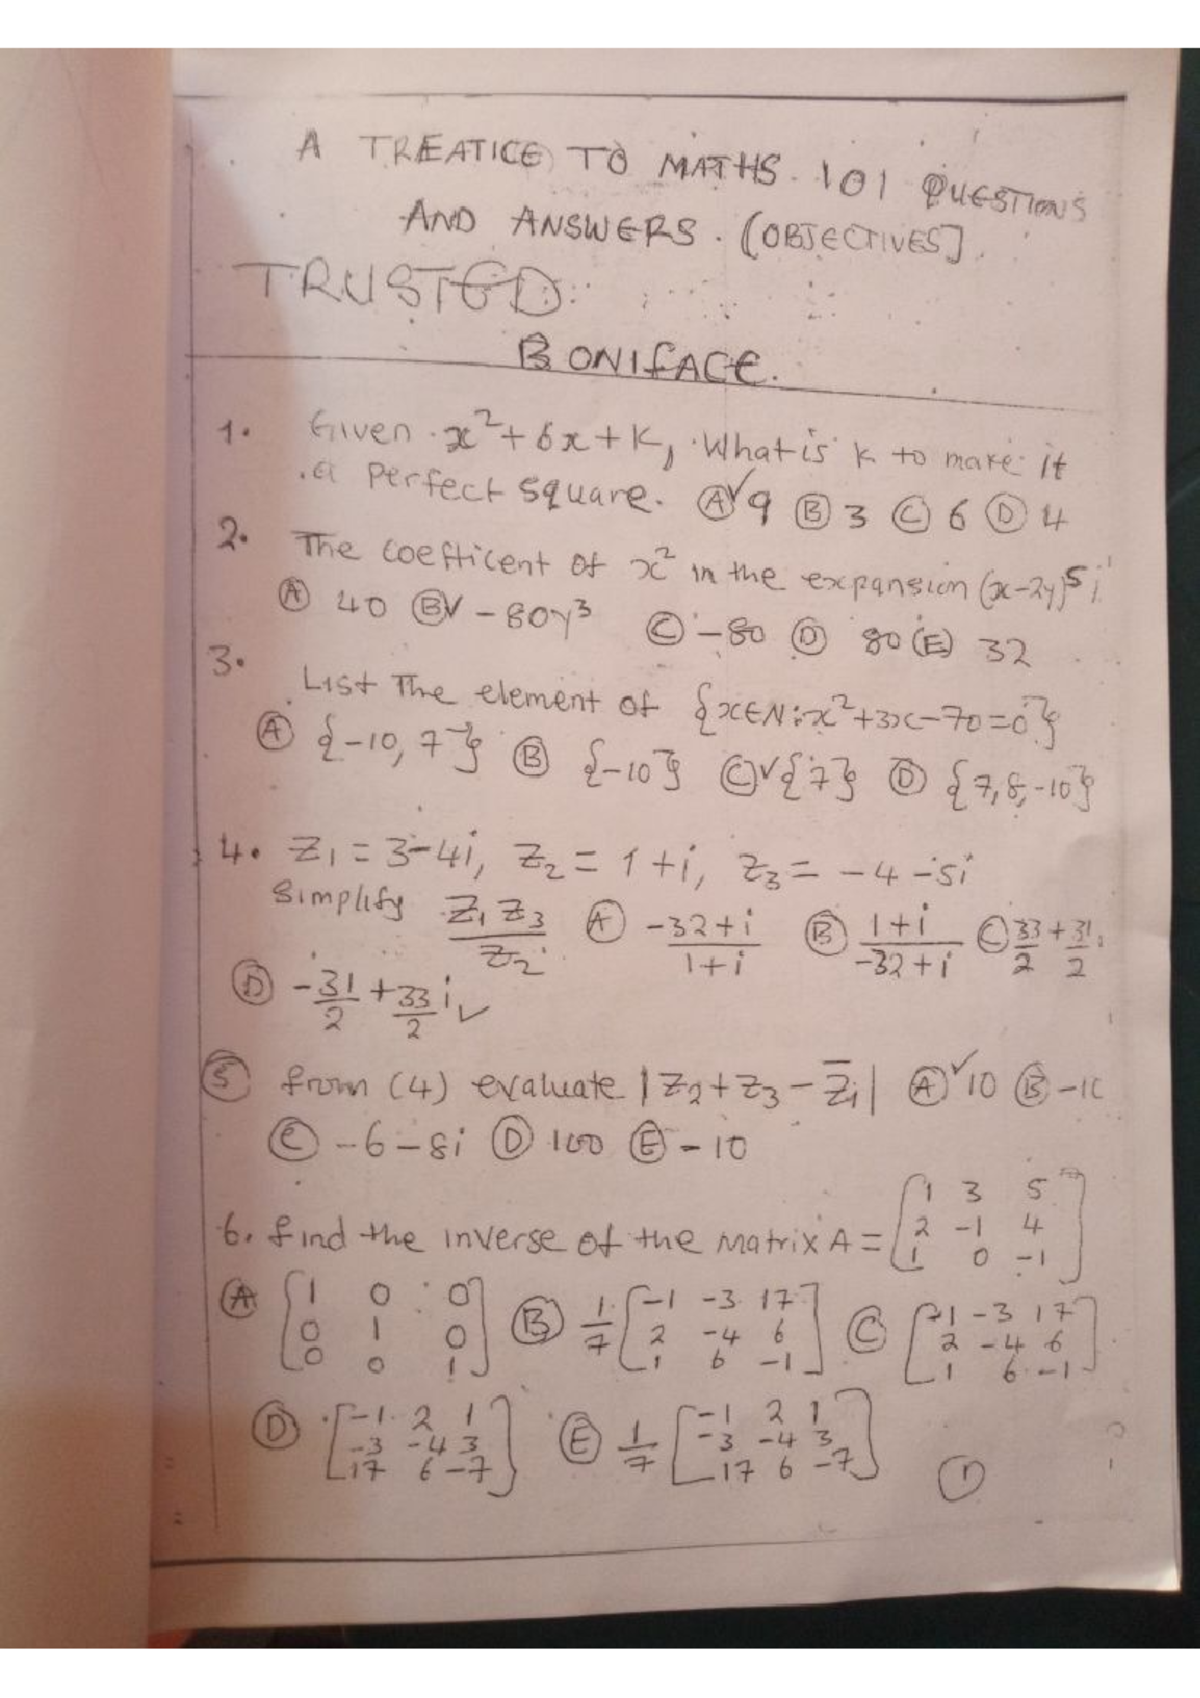 A TREATICE TO MATHS 101 QUESTIONS
AND ANSWERS. (OBJECTIVES].
TRUSTED
BONIFACE.
1. Given x²+6x+K, What is K to make it
a perfect square. (A)✓ 9 (B) 3 (C) 6 (D) 4
2. The coefficent of x² in the expansion (x-2y)⁵ i
(A) 40 (B)✓ -80y³ (C) -80 (D) 80 (E) 32
3. List The element of {x∈N:x²+3x-70=0}
(A) {-10, 7} (B) {-10} (C)✓ {7} (D) {7,8,-10}
4. Z₁ = 3-4i, Z₂ = 1+i, Z₃ = -4-5i
Simplify Z₁Z₃/Z₂ (A) -32+i/1+i (B) 1+i/-32+i (C) 33/2 + 31/2
(D) -31/2 + 33/2 i ✓
(5) from (4) evaluate |Z₂+Z₃-Z̄₁| (A)✓ 10 (B) -10
(C) -6-8i (D) 100 (E) -10
6. find the inverse of the matrix A = [1 3 5
2 -1 4
1 0 -1]
(A) [1 0 0 (B) 1/7 [-1 -3 17 (C) [-1 -3 17
0 1 0 2 -4 6 2 -4 6
0 0 1] 1 6 -1] 1 6 -1]
(D) [-1 2 1 (E) 1/7 [-1 2 1
-3 -4 3 -3 -4 3
17 6 -7] 17 6 -7]
(1)